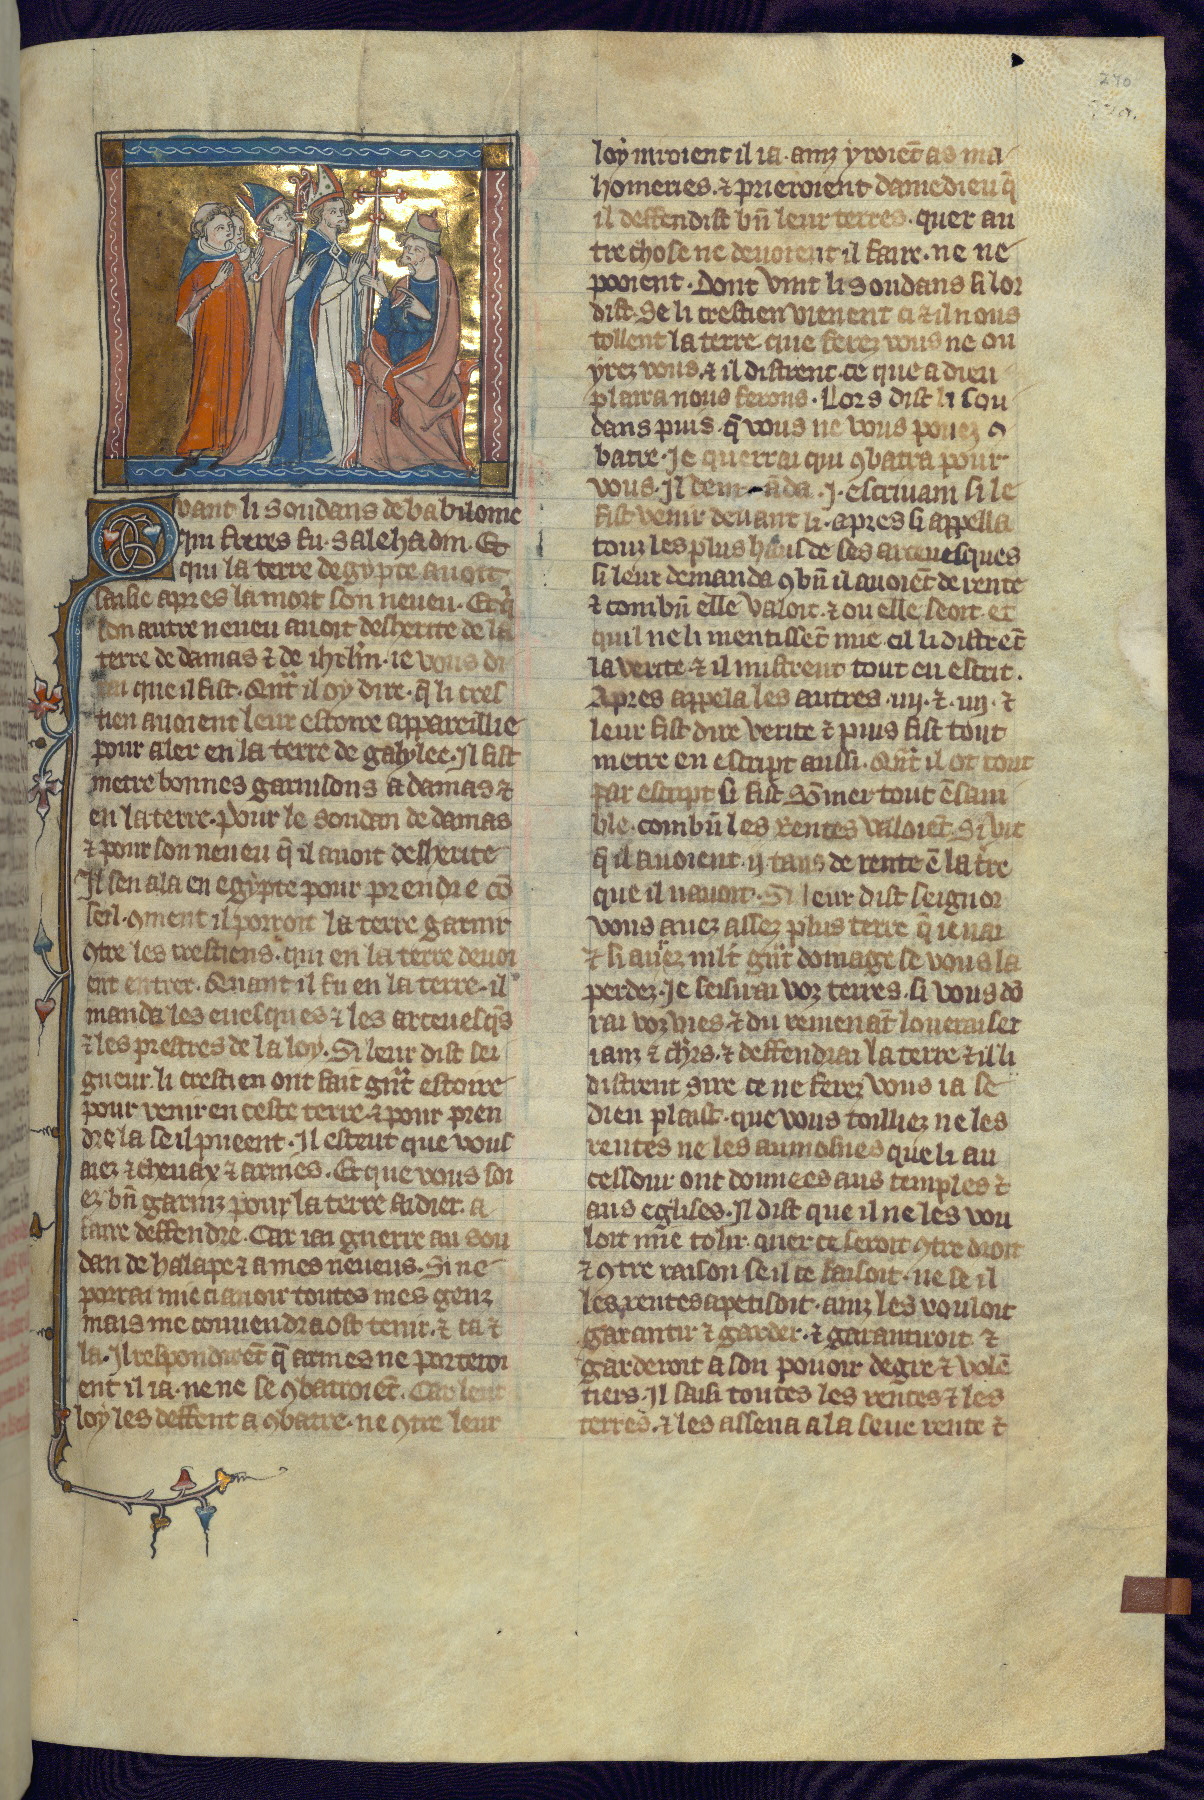 240
Quant li soudans de babiloine
qui freres fu. Salehadin. Et
qui la terre degypte auoit
saisie apres la mort son neueu. Et q̃
son autre neueu auoit desherite de la
terre de damas ⁊ de ihrl'm. ie vous di
rai que il fist. Qñt il oy dire. q̃ li cres
tien auoient leur estoire appareillie
pour aler en la terre de gahylee. Il fist
metre bonnes garnisons a damas ⁊
en la terre. pour le soudan de damas
⁊ pour son neueu q̃ il auoit desherite
Il sen ala en egypte pour prendre cõ
seil. ꝯment il porroit la terre garnir
ꝯtre les crestiens. qui en la terre deuoi
ent entrer. Quant il fu en la terre. il
manda les euesques ⁊ les arceuesq̃s
⁊ les prestres de la loy. Si leur dist sei
gneur. li crestien ont fait gñt estoire
pour venir en ceste terre. ⁊ pour pren
dre la se il pueent. Il estuet que vous
aiez ⁊ cheuax ⁊ armes. Et que vous soi
ez bñ garniz pour la terre aidier. a
faire deffendre. Car iai guerre au sou
dan de halape ⁊ a mes neueus. Si ne
porrai mie ci auoir toutes mes genz
mais me conuendra ost tenir. ⁊ ca ⁊
la. Il respondirẽt q̃ armes ne porteroi
ent il ia. ne ne se ꝯbatroiẽt. Car leur
loy les deffent a ꝯbatre. ne ꝯtre leur
loy niroient il ia. ainz yroiẽt as ma
homeries. ⁊ prieroient damedieu q̃
il deffendist bñ leur terres. quer au
tre chose ne deuoient il faire. ne ne
pooient. Dont vint li soudans si lor
dist. Se li crestien vienent ci ⁊ il nous
tollent la terre que ferez vous ne ou
yrez vous. ⁊ il distrent. ce que a dieu
plaira nous ferons. Lors dist li sou
dans puis. q̃ vous ne vous pouez ꝯ
batre. Je querrai qui ꝯbatra pour
vous. Il demanda .j. escriuain si le
fist venir deuant li. apres si appella
touz les plus hauls de ses arceuesques
si leur demanda ꝯbñ il auoiẽt de rente
⁊ combñ elle valoit. ⁊ ou elle seoit. et
quil ne li mentissẽt mie. cil li distrẽt
la verite ⁊ il mistrent tout en escrit.
Apres appela les autres .iij. ⁊ .iiij. ⁊
leur fist dire verite ⁊ puis fist tout
metre en escript aussi. Qñt il ot tout
par escript si fist sõmer tout ẽsam
ble. combñ les rentes valoiẽt. Si vit
q̃ il auoient .ij. tans de rente ẽ la t̃re
que il nauoit. Si leur dist seignor
vous auez assez plus terre q̃ ie nai
⁊ si auˀez mlt̃ gñt domage se vous la
perdez. Je seisirai voz terres. si vous dõ
rai voz vies. ⁊ du remenãt louerai ser
ianz ⁊ chr̃s. ⁊ deffendrai la terre ⁊ il li
distrent Sire ce ne ferez vous ia se
dieu plaist. que vous toilliez ne les
rentes ne les aumosnes que li an
cessour ont donnees aus temples ⁊
aus eglises. Il dist que il ne les vou
loit mie tolir. quer ce seroit ꝯtre droit
⁊ ꝯtre raison se il ce faisoit. ne se il
les rentes apetisoit. ainz les vouloit
garantir ⁊ garder. ⁊ garantiroit. ⁊
garderoit a son pouoir de gre ⁊ volẽ
tiers. Il saisi toutes les rentes ⁊ les
terres. ⁊ les assena a la seue rente ⁊